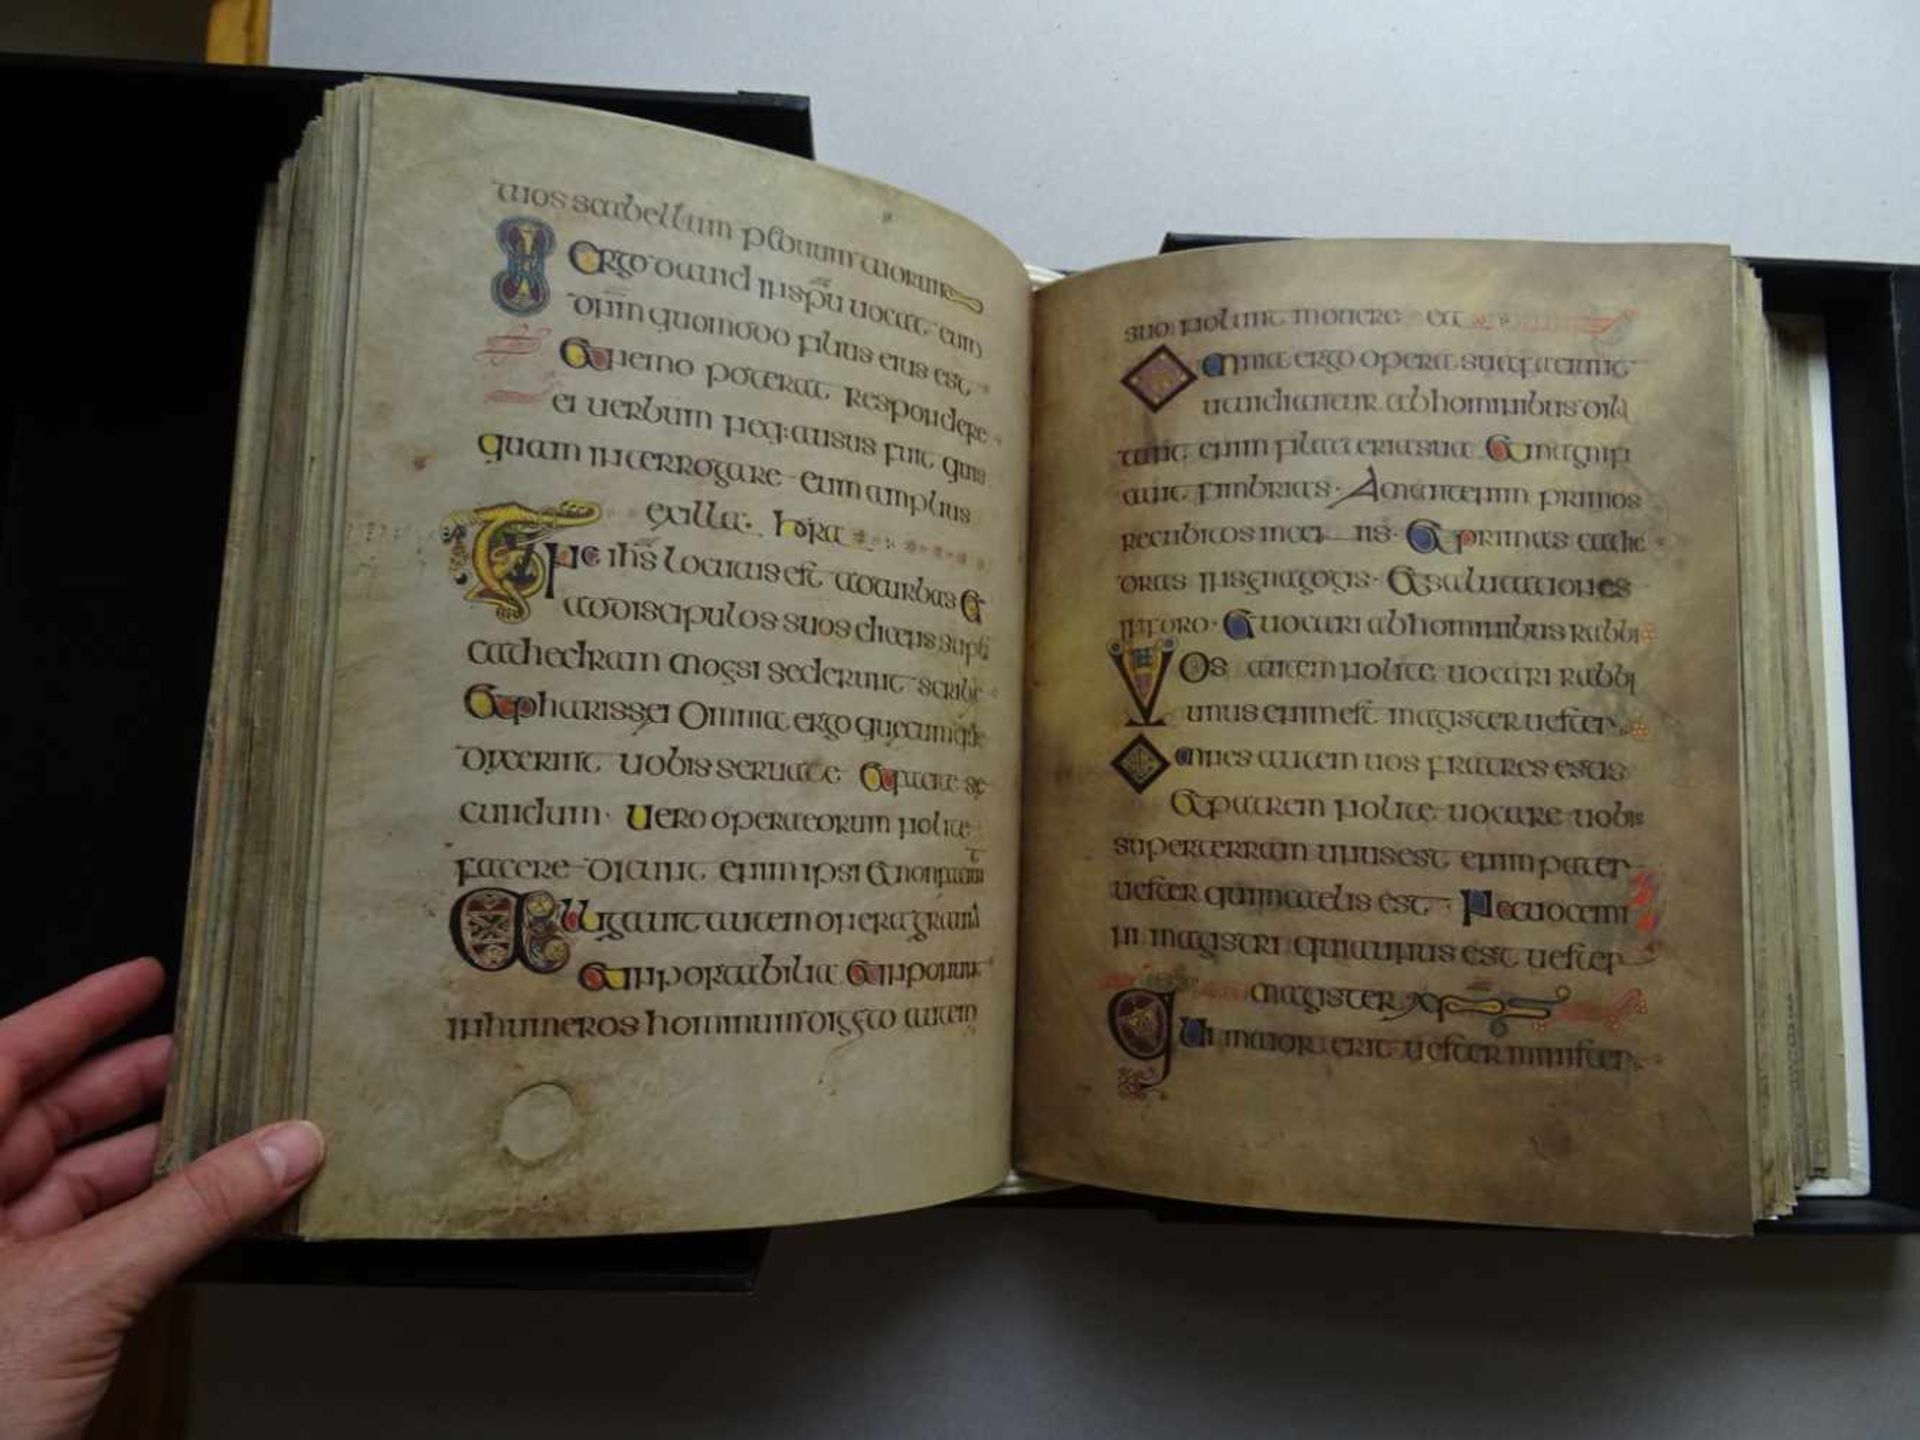 tuos scabellum pedum tuorum
Si ergo dauid in spu uocat eum
dnm quomodo filius eius est
Et nemo poterat respondere
ei uerbum neq: ausus fuit quis
quam interrogare eum amplius
ex illa hora
Tunc ihs locutus est ad turbas et
ad discipulos suos dicens super
cathedram mosi sederunt scribe
Et pharissei Omnia ergo quecumque
dixerint uobis seruate Et facite se
cundum uero opera eorum nolite
facere dicunt enim ipsi et non faciunt
Alligant autem onera grauia
Et inportabilia Et inponunt
in humeros hominum digito autem
suo nolunt mouere ea
Omnia ergo opera sua faciunt
ut uideantur ab hominibus dila
tant enim filacteria sua Et magnifi
cant fimbrias Amant enim primos
recubitos in cenis Et primas cathe
dras in sinagogis Et salutationes
in foro Et uocari ab hominibus rabbi
Vos autem nolite uocari rabbi
unus enim est magister uester
Omnes autem uos fratres estis
Et patrem nolite uocare uobis
super terram unus est enim pater
uester qui in caelis est Nec uocemi
ni magistri quia unus est uester
magister xps
Qui maior erit uester minister